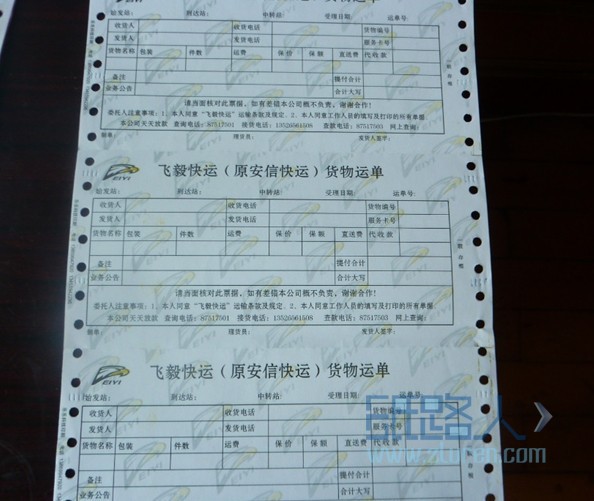 货物运单
始发站: 到达站: 中转站: 受理日期: 运单号:
收货人 收货电话 货物编号
发货人 发货电话 服务卡号
货物名称 包装 件数 运费 保价 保额 直送费 代收款
备注 提付合计
业务公告 合计大写
请当面核对此票据,如有差错本公司概不负责,谢谢合作!
委托人注意事项:1、本人同意“飞毅快运”运输条款及规定. 2、本人同意工作人员的填写及打印的所有单据
本公司天天放款 查询电话: 87517501 接货电话: 13526561508 查款电话: 87517503 网上查询:
制单: 理货员: 发货人签字:
FEIYI
飞毅快运(原安信快运)货物运单
始发站: 到达站: 中转站: 受理日期: 运单号:
收货人 收货电话 货物编号
发货人 发货电话 服务卡号
货物名称 包装 件数 运费 保价 保额 直送费 代收款
备注 提付合计
业务公告 合计大写
请当面核对此票据,如有差错本公司概不负责,谢谢合作!
委托人注意事项:1、本人同意“飞毅快运”运输条款及规定. 2、本人同意工作人员的填写及打印的所有单据
本公司天天放款 查询电话: 87517501 接货电话: 13526561508 查款电话: 87517503 网上查询:
制单: 理货员: 发货人签字:
FEIYI
飞毅快运(原安信快运)货物运单
始发站: 到达站: 中转站: 受理日期: 运单号:
收货人 收货电话 货物编号
发货人 发货电话
货物名称 包装 件数 运费 保价 保额 直送费 代收款
备注 提付合计
业务公告 合计大写
路人